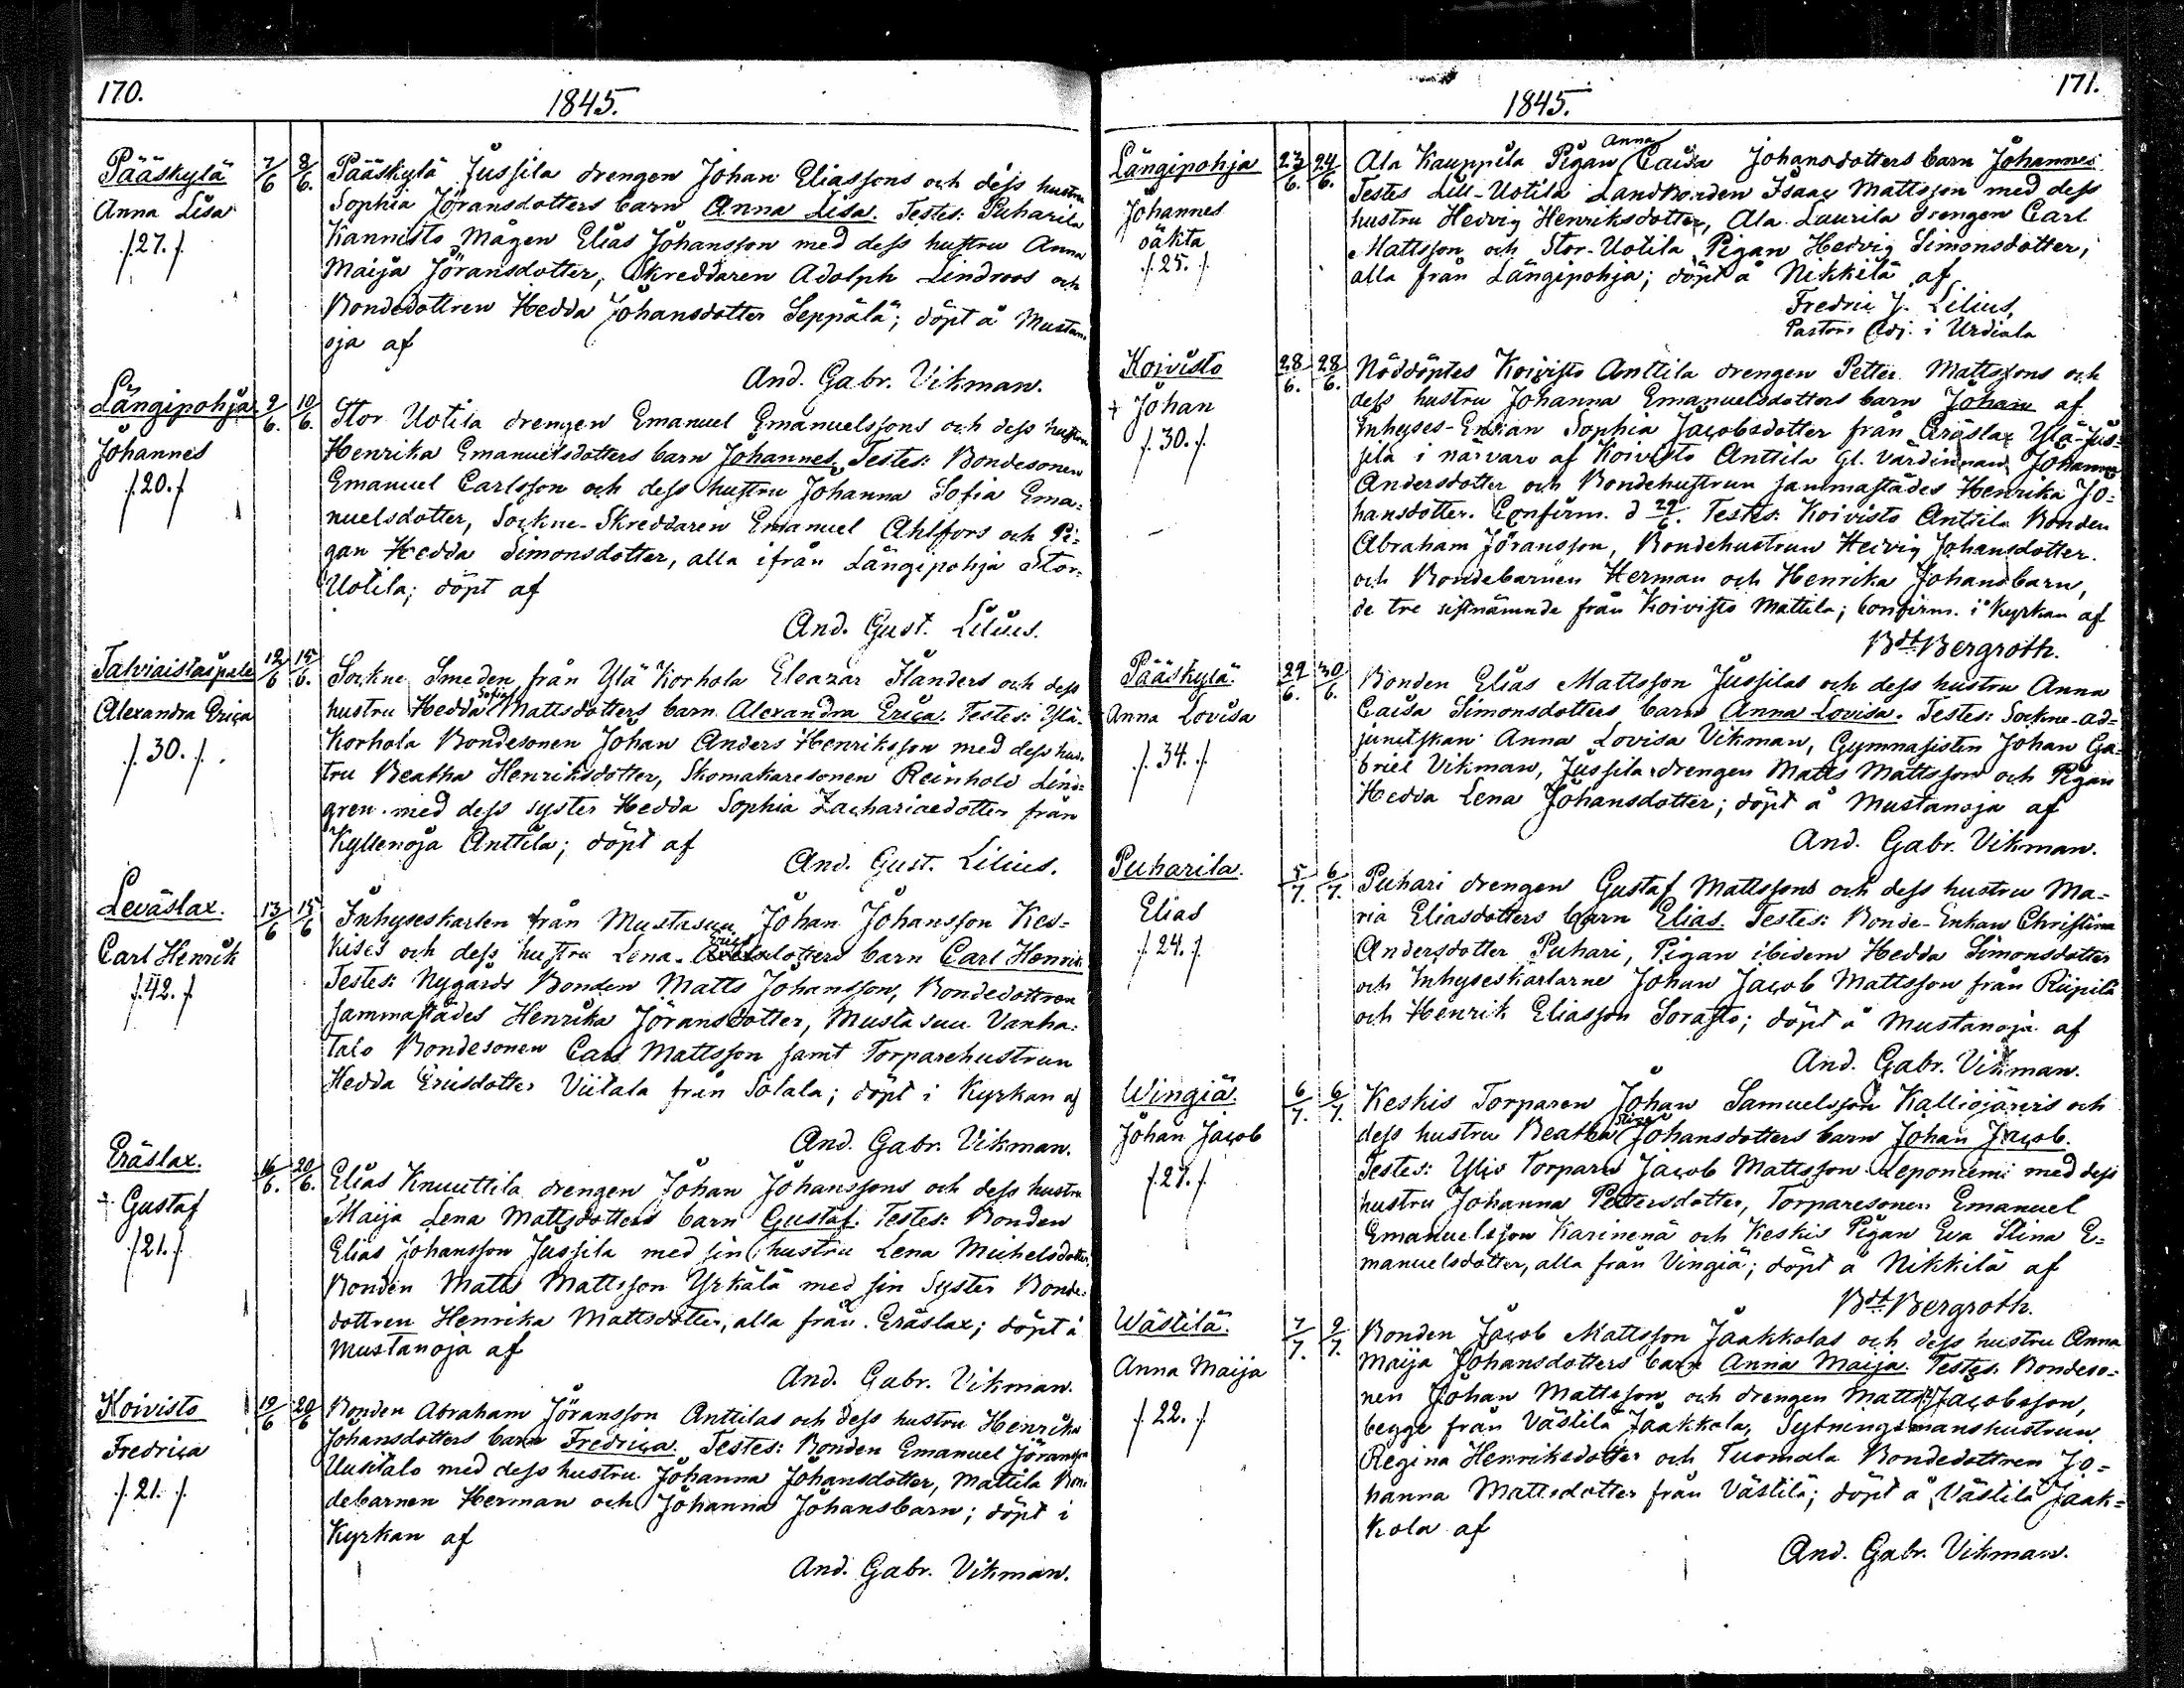 170.
1845.
Pääskylä
Anna Lisa
/.27./
7/6
8/6.
Pääskylä Jussila drengen Johan Eliassons och dess hustru
Sophia Jöransdotters barn Anna Lisa. Testes: Puharila
Kannisto Mågen Elias Johansson med dess hustru Anna
Maija Jöransdotter, Skreddaren Adolph Lindroos och
Bondedottren Hedda Johansdotter Seppälä; döpt å Mustan-
oja af
And. Gabr. Vikman.
Längipohja
Johannes
/.20./
9/6.
10/6.
Stor Uotila drengen Emanuel Emanuelssons och dess hustru
Henrika Emanuelsdotters barn Johannes. Testes: Bondesonen
Emanuel Carlsson och dess hustru Johanna Sofia Ema=
nuelsdotter, Sockne-Skreddaren Emanuel Ahlfors och Pi=
gan Hedda Simonsdotter, alla ifrån Längipohja Stor-
Uotila; döpt af
And. Gust. Lilius.
Talviaistaipale
Alexandra Erica
/.30./.
12/6
15/6.
Sockne Smeden från Ylä Korhola Eleazar Flanders och dess
hustru Hedda Sofia Mattsdotters barn Alexandra Erica. Testes: Ylä-
Korhola Bondesonen Johan Anders Henriksson med dess hus-
tru Beatha Henriksdotter, Skomakaresonen Reinhold Lind=
gren med dess syster Hedda Sophia Zachariaedotter från
Kyllenoja Anttila; döpt af
And. Gust. Lilius.
Leväslax.
Carl Henrik
/.42./
13/6
15/6
Inhyseskarlen från Mustasuu Johan Johansson Kes=
kises och dess hustru Lena Ericsdotters barn Carl Henrik
Testes: Nygårds Bonden Matts Johansson, Bondedottren
sammastädes Henrika Jöransdotter, Mustasuu Vanha-
talo Bondesonen Carl Mattsson samt Torparehustrun
Hedda Ericsdotter Viitala från Solala; döpt i Kyrkan af
And. Gabr. Vikman.
Eräslax.
+ Gustaf
/.21./
16/6.
20/6.
Elias Knuuttila drengen Johan Johanssons och dess hustru
Maija Lena Mattsdotters barn Gustaf. Testes: Bonden
Elias Johansson Jussila med sin hustru Lena Michelsdotter
Bonden Matts Mattsson Yrkälä med sin Syster Bonde-
dottren Henrika Mattsdotter, alla från Eräslax; döpt å
Mustanoja af
And. Gabr. Vikman.
Koivisto
Fredrica
/.21./
19/6
20/6
Bonden Abraham Jöransson Anttilas och dess hustru Henrika
Johansdotters barn Fredrica. Testes: Bonden Emanuel Jöransson
Uusitalo med dess hustru Johanna Johansdotter, Mattila Bon-
debarnen Herman och Johanna Johansbarn; döpt i
Kyrkan af
And. Gabr. Vikman.
171.
1845.
Längipohja
Johannes
oäkta
/.25./
23/6.
24/6.
Ala Kauppila Pigan Anna Caisa Johansdotters barn Johannes
Testes Lill-Uotila Landbonden Isaac Mattsson med dess
hustru Hedvig Henriksdotter, Ala Laurila drengen Carl
Mattsson och Stor-Uotila Pigan Hedvig Simonsdotter,
alla från Längipohja; döpt å Nikkilä af
Fredric J. Lilius,
Pastors Adj. i Urdiala
Koivisto
+ Johan
/.30./
28/6.
28/6.
Nöddöptes Koivisto Anttila drengen Petter Mattssons och
dess hustru Johanna Emanuelsdotters barn Johan af
Inhyses-Enkan Sophia Jacobsdotter från Eräslax Ylä-Jus=
sila i närvaro af Koivisto Anttila Gl. Värdinnan Johanna
Andersdotter och Bondehustrun sammastädes Henrika Jo=
hansdotter. Confirm. d 29/6. Testes: Koivisto Anttila Bonden
Abraham Jöransson, Bondehustrun Hedvig Johansdotter
och Bondebarnen Herman och Henrika Johansbarn,
de tre sistnämnde från Koivisto Mattila; Confirm. i Kyrkan af
Bdt Bergroth.
Pääskylä.
Anna Lovisa
/.34./
29/6.
30/6.
Bonden Elias Mattsson Jussilas och dess hustru Anna
Caisa Simonsdotters barn Anna Lovisa. Testes: Sockne-ad=
junctskan Anna Lovisa Vikman, Gymnasisten Johan Ga=
briel Vikman, Jussila drengen Matts Mattsson och Pigan
Hedda Lena Johansdotter; döpt å Mustanoja af
And. Gabr. Vikman.
Puharila.
Elias
/.24./
5/7.
6/7.
Puhari drengen Gustaf Mattssons och dess hustru Ma=
ria Eliasdotters barn Elias. Testes: Bonde-Enkan Christina
Andersdotter Puhari, Pigan ibidem Hedda Simonsdotter
och Inhyseskarlarne Johan Jacob Mattsson från Riipilä
och Henrik Eliasson Sorasto; döpt å Mustanoja af
And. Gabr. Vikman.
Wingiä.
Johan Jacob
/.27./
6/7.
6/7.
Keskis Torparen Johan Samuelsson Kalliojärvis och
dess hustru Beatha Stina Johansdotters barn Johan Jacob.
Testes: Ylis Torparn Jacob Mattsson Leponiemi med dess
hustru Johanna Pettersdotter, Torparesonen Emanuel
Emanuelsson Karinenä och Keskis Pigan Eva Stina E=
manuelsdotter, alla från Vingiä; döpt å Nikkilä af
Bdt Bergroth.
Wästilä.
Anna Maija
/.22./
7/7.
9/7.
Bonden Jacob Mattsson Jaakkolas och dess hustru Anna
Maija Johansdotters barn Anna Maija. Testes. Bondeso=
nen Johan Mattsson och drengen Matts Jacobsson,
begge från Västilä Jaakkola, Sytningsmanshustrun
Regina Henriksdotter och Tuomala Bondedottren Jo=
hanna Mattsdotter från Västilä; döpt å Västilä Jaak=
kola af
And. Gabr. Vikman.